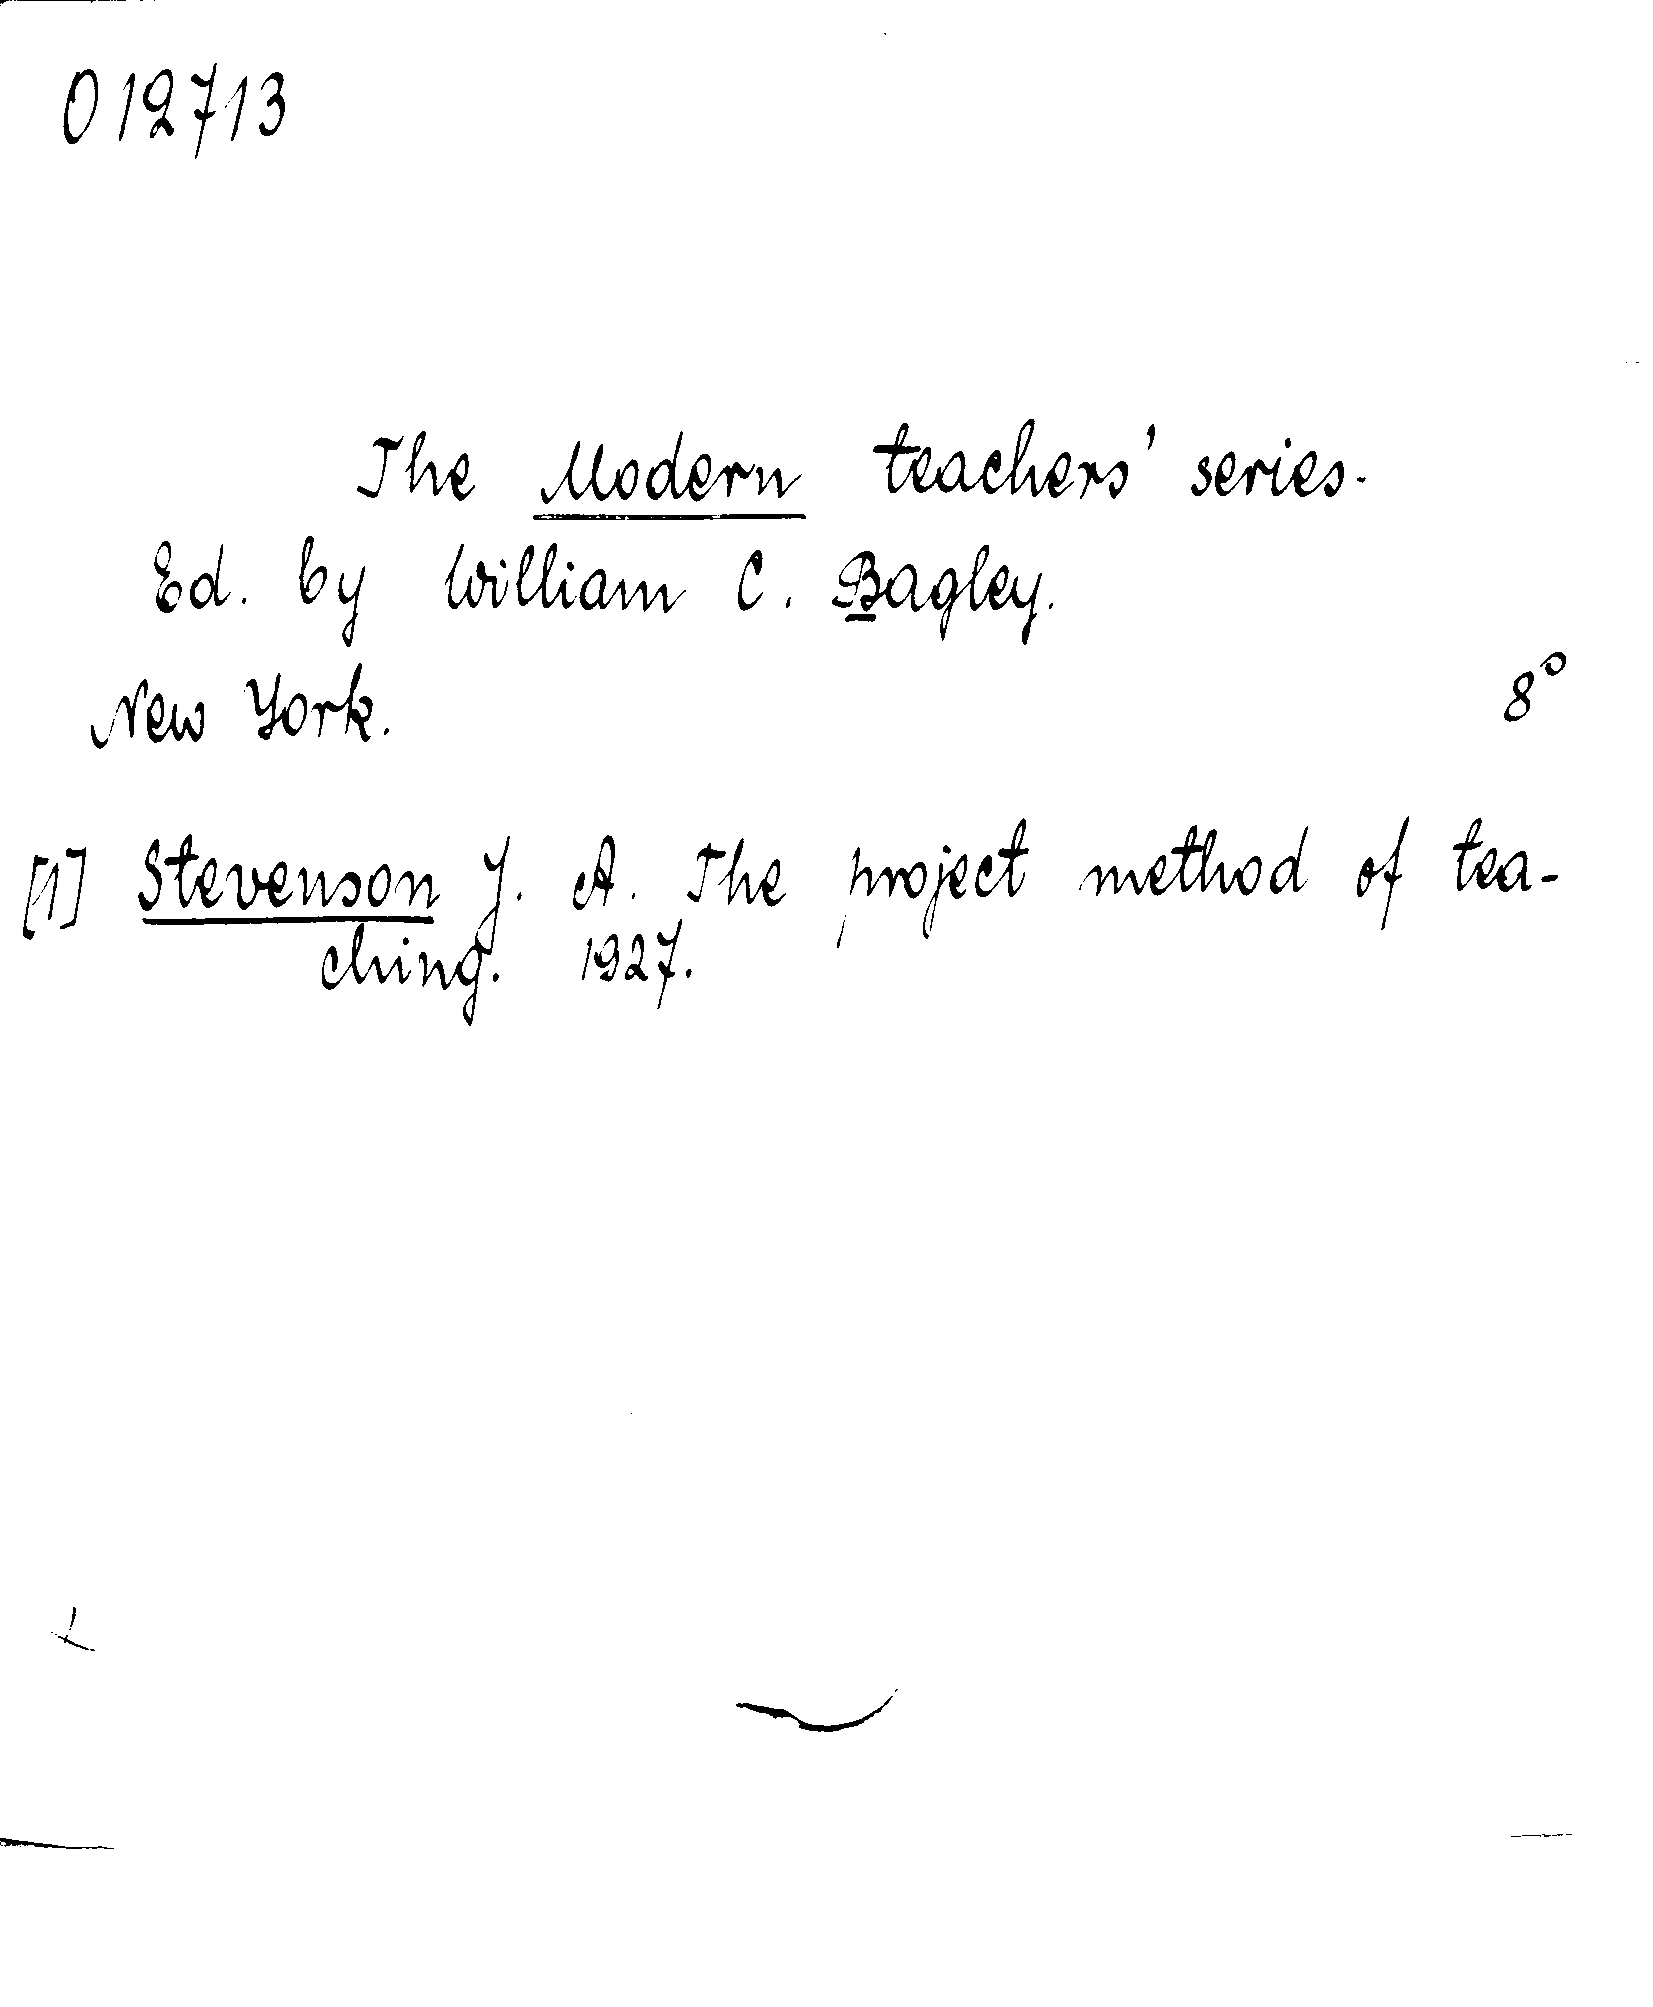 012713
The Modern teachers' series.
Ed. by William C. Bagley.
New York. 8°
[1] Stevenson J. A. The project method of tea-
ching. 1927.